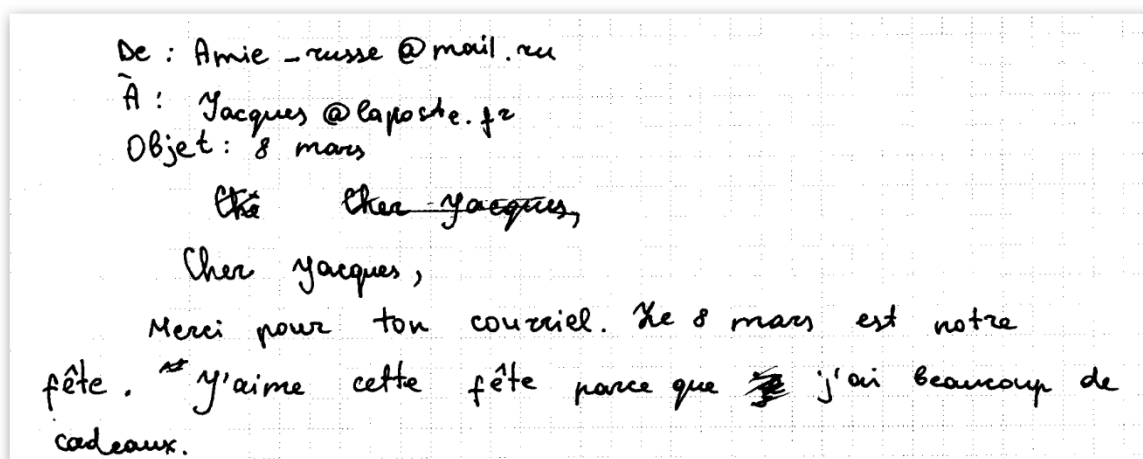 De : Amie_russe@mail.ru
À : Jacques@laposte.fr
Objet : 8 mars
Cher Jacques,
Cher Jacques,
Merci pour ton courriel. Le 8 mars est notre
fête. J'aime cette fête parce que j'ai beaucoup de
cadeaux.